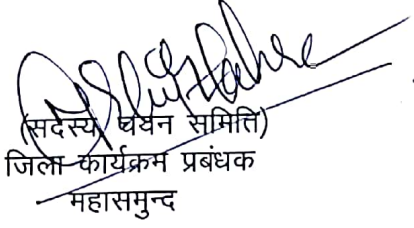 (सदस्य चयन समिति)
जिला कार्यक्रम प्रबंधक
महासमुन्द